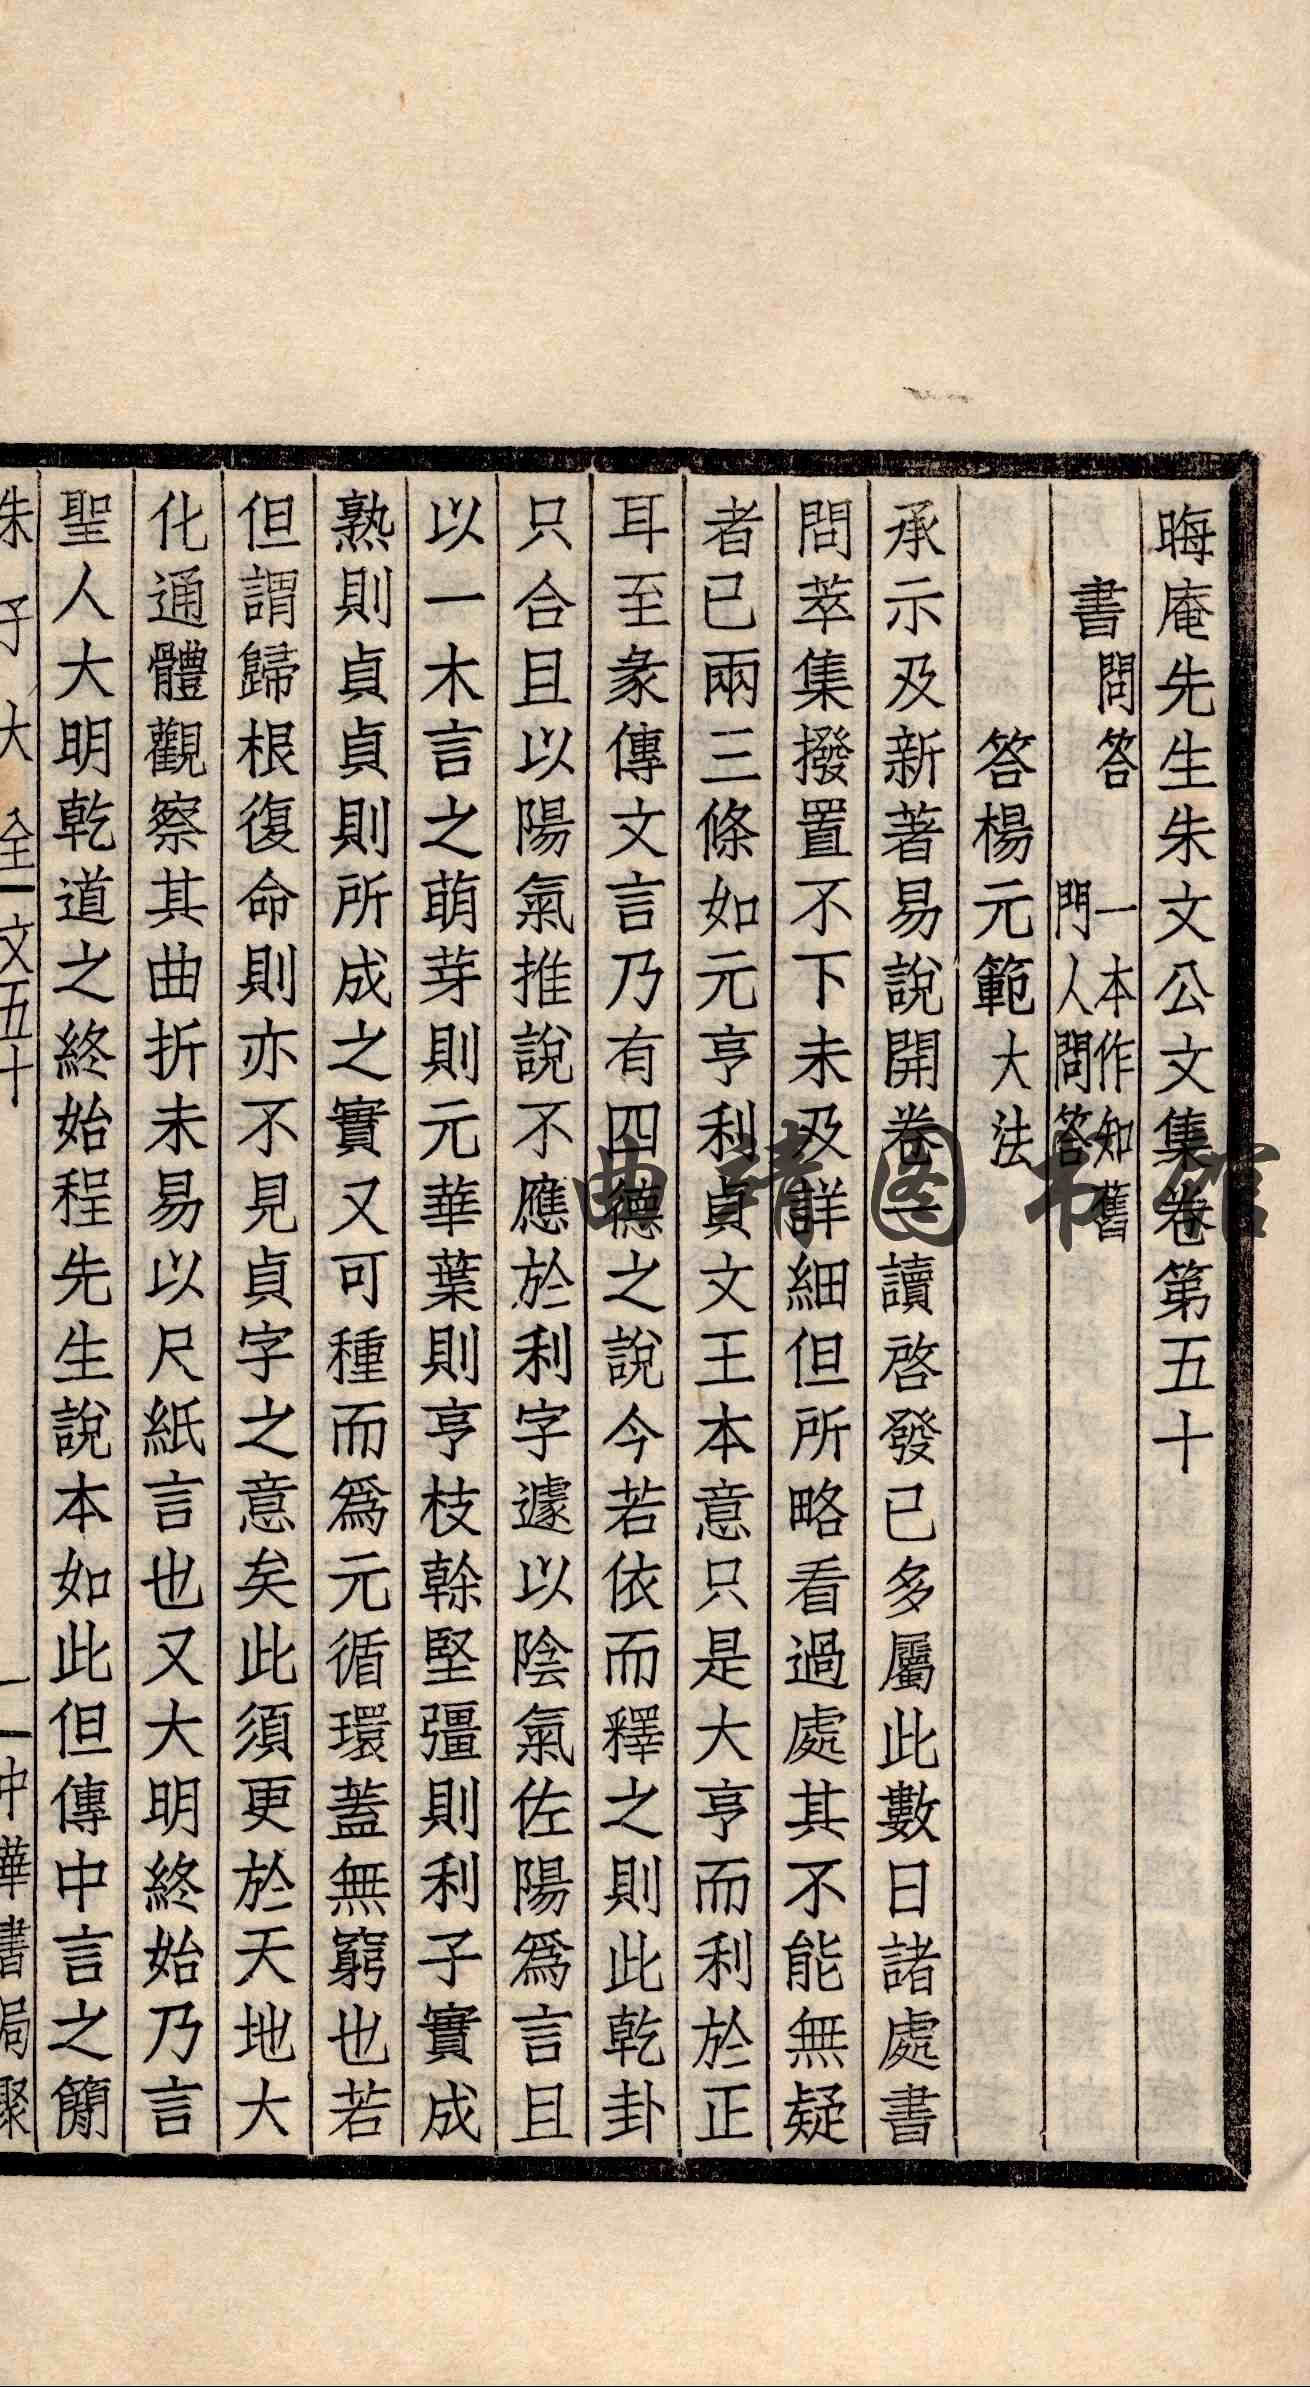 晦庵先生朱文公文集卷第五十
書問答 一本作知舊門人問答
答楊元範大法
承示及新著易說開卷一讀啓發已多屬此數日諸處書
問萃集撥置不下未及詳細但所略看過處其不能無疑
者已兩三條如元亨利貞文王本意只是大亨而利於正
耳至彖傳文言乃有四德之說今若依而釋之則此乾卦
只合且以陽氣推說不應於利字遽以陰氣佐陽為言且
以一木言之萌芽則元華葉則亨枝榦堅彊則利子實成
熟則貞貞則所成之實又可種而為元循環蓋無窮也若
但謂歸根復命則亦不見貞字之意矣此須更於天地大
化通體觀察其曲折未易以尺紙言也又大明終始乃言
聖人大明乾道之終始程先生說本如此但傳中言之簡
朱子大全 文五十 一 中華書局聚
曲靖图书馆